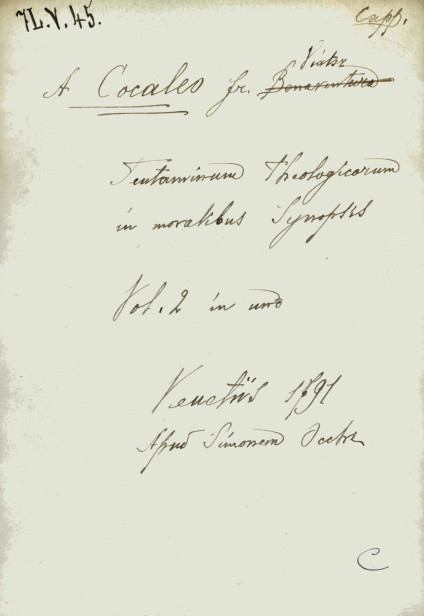 7L.V.45.
Capp.
Viator
A Cocaleo fr. Bonaventura
Tentaminum Theologicorum
in moralibus Synopsis
Vol. 2 in uno
Venetiis 1791
Apud Simonem Occhi
C